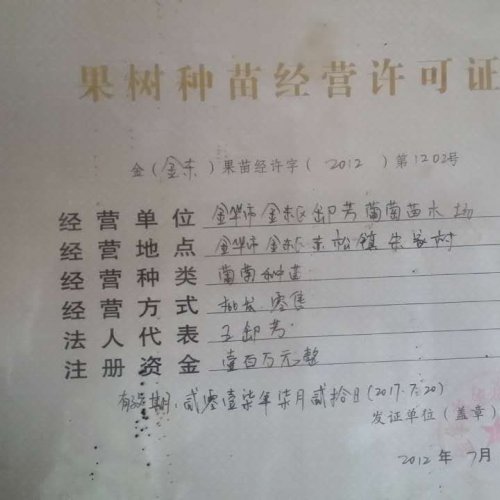 果树种苗经营许可证
金（金东）果苗经许字（2012）第1202号
经营单位 金华市金东区卸芳葡萄苗木场
经营地点 金华市金东区东松镇朱家村
经营种类 葡萄种苗
经营方式 批发、零售
法人代表 王卸芳
注册资金 壹百万元整
有效期、贰零壹柒年柒月贰拾日(2017.7.20)
发证单位（盖章）
2012年7月